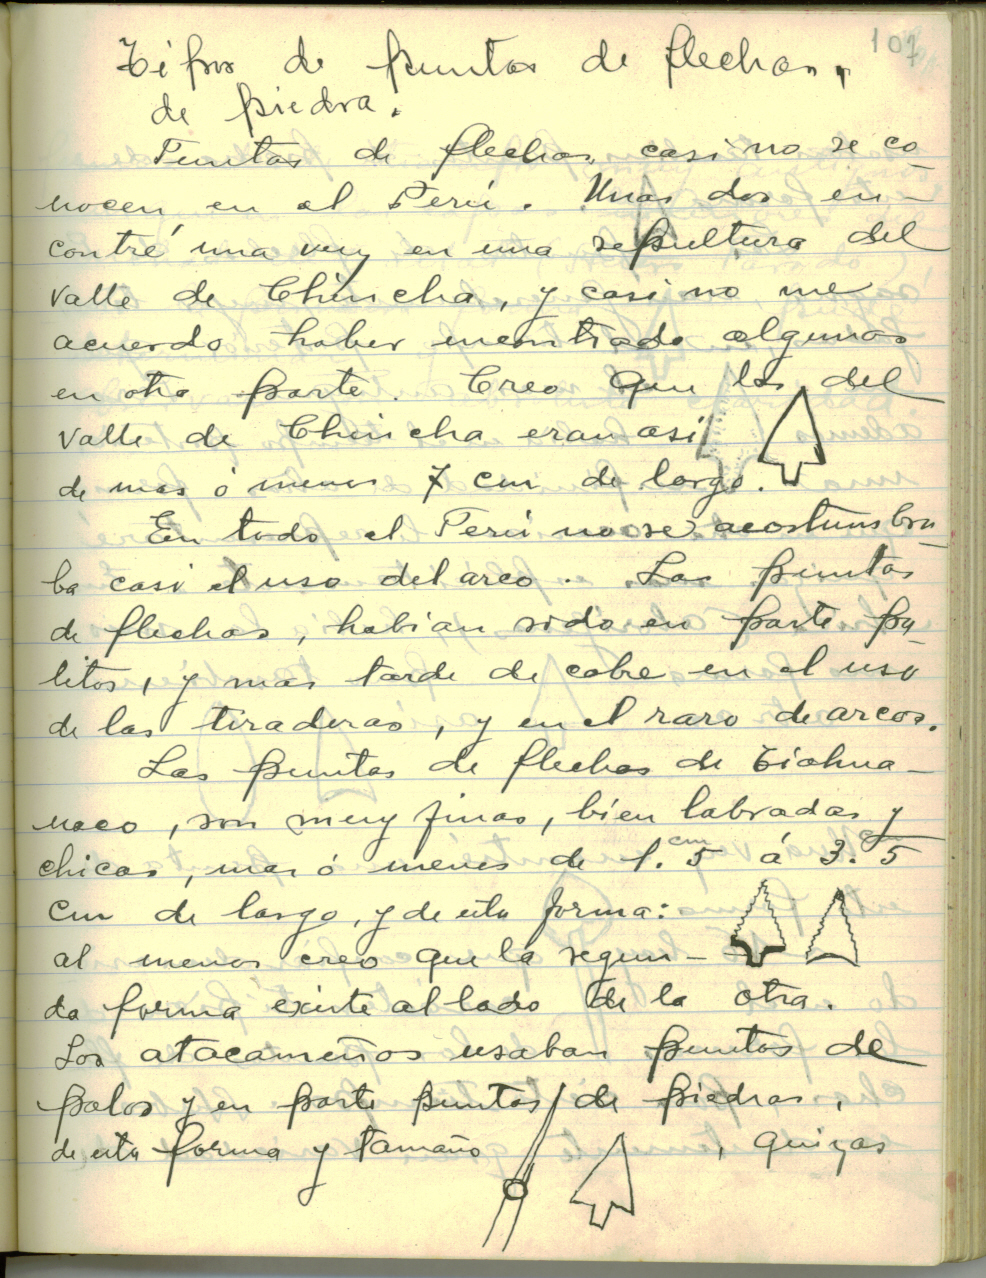 107
Tipos de puntas de flechas,
de piedra.
Puntas de flechas, casi no se co-
nocen en el Perú. Unas dos en-
contré una vez en una sepultura del
valle de Chincha, y casi no me
acuerdo haber encontrado algunas
en otra parte. Creo que las del
valle de Chincha eran asi
de mas ó menos 7 cm de largo.
En todo el Perú no se acostumbra-
ba casi el uso del arco. Las puntas
de flechas, habian sido en parte pa-
litos, y mas tarde de cobre en el uso
de las tiraderas, y en el raro de arcos.
Las puntas de flechas de Tiahua-
naco, son muy finas, bien labradas y
chicas, mas ó menos de 1.cm 5 á 3.cm 5
cm de largo, y de esta forma:
al menos creo que la segun-
da forma existe al lado de la otra.
Los atacameños usaban puntas de
palos y en parte puntas de piedras,
de esta forma y tamaño , quizas